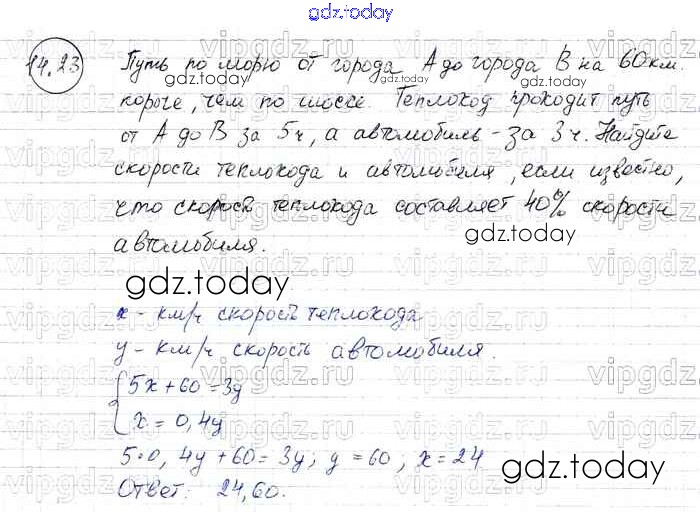 gdz.today
14.23 Путь по морю от города А до города В на 60 км.
короче, чем по шоссе. Теплоход проходит путь
от А до В за 5ч, а автомобиль - за 3 ч. Найдите
скорости теплохода и автомобиля, если известно,
что скорость теплохода составляет 40% скорости
автомобиля.
x - км/ч скорость теплохода
y - км/ч скорость автомобиля.
5x + 60 = 3y
x = 0,4y
5·0,4y + 60 = 3y; y = 60; x = 24
Ответ: 24, 60.
gdz.today
gdz.today
gdz.today
gdz.today
gdz.today
gdz.today
vipgdz.ru